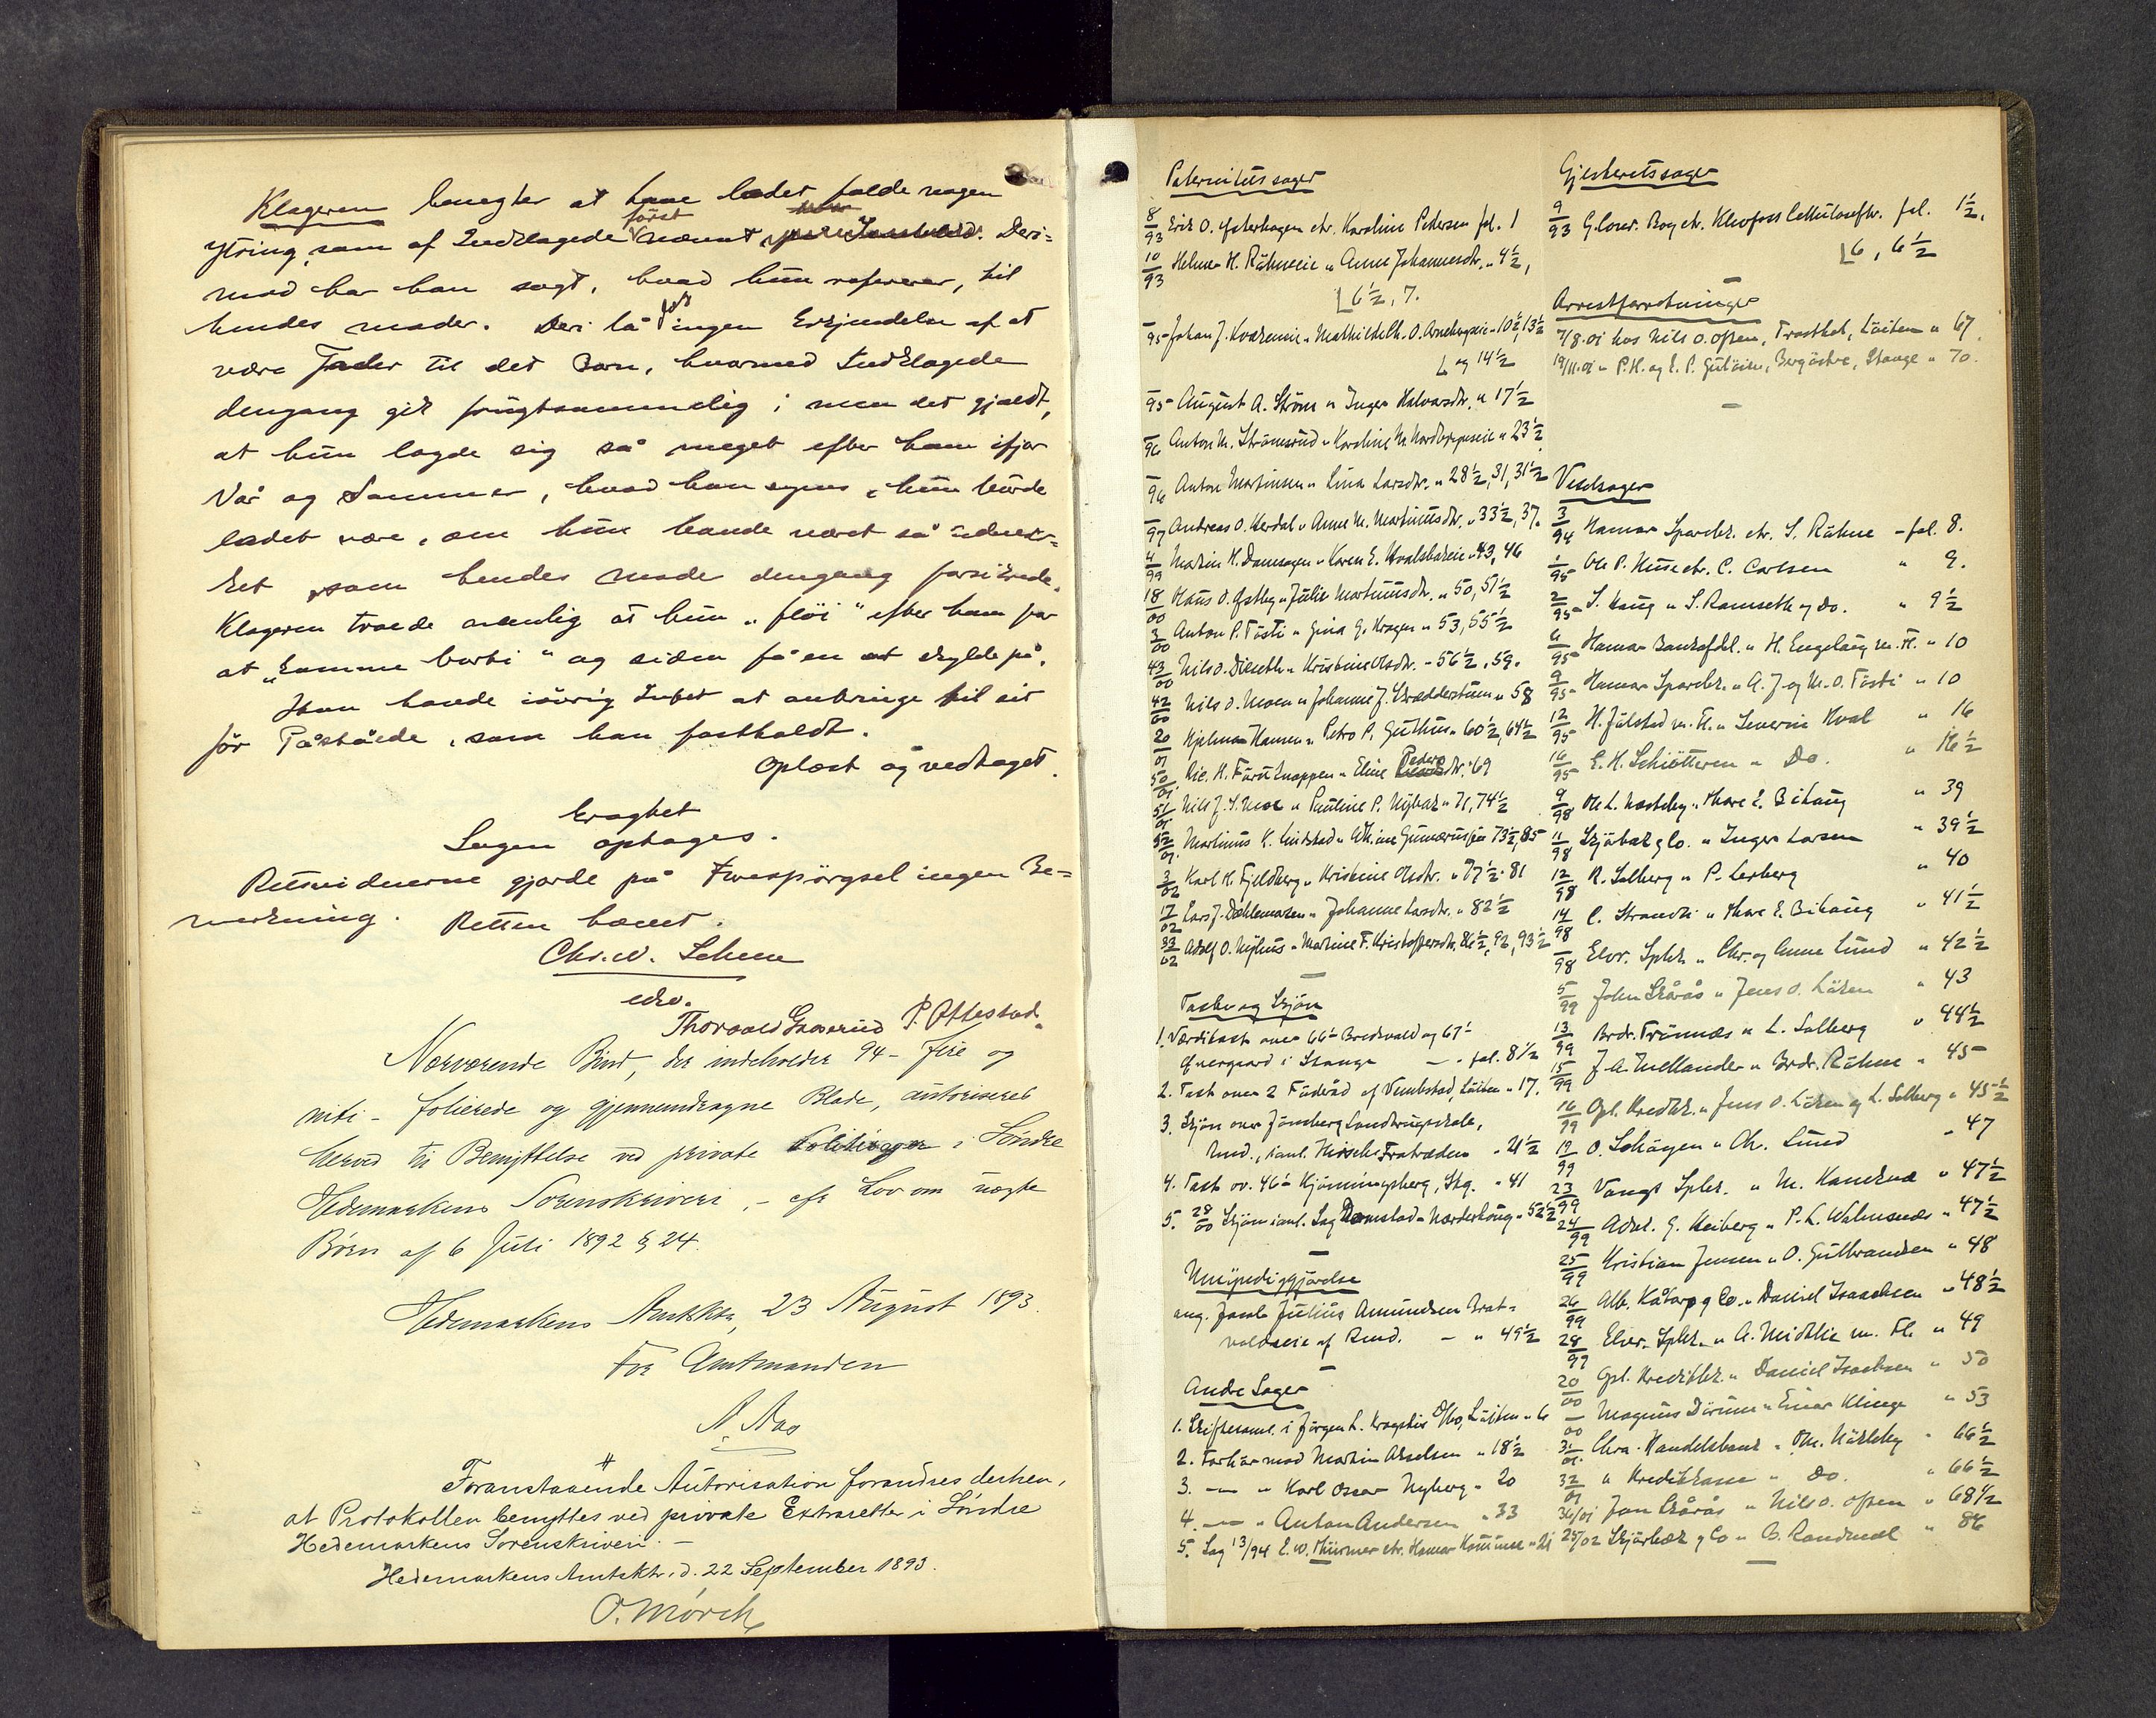 Klageren benegter at have ladet falde nogen
Ytring, som af Indklagede först nævnt. Deri=
mod har han sagt, hvad hun refererer, til
hendes moder. Deri lå dog ingen Erkjendelse af at
være Fader til det Barn, hvormed Indklagede
dengang gik frugtsommelig; men det gjaldt,
at hun lagde sig så meget efter ham ifjor
Vår og Sommer, hvad han synes, hun burde
ladet være, om hun havde været så
ket som hendes moder dengang forsikrede.
Klageren troede nemlig at hun „flöi“ efter ham for
at „komme borti“ og siden få en at skylde på.
Han havde iövrig Intet at anbringe til sit
för Påståede, som han fastholdt.
Oplæst og vedtaget.
Eragtet
Sagen optages.
Retsvidnerne gjorde på Forespörgsel ingen Be=
mærkning. Retten hævet.
Chr. W. Scheen
edsv.
Thorvald Gaaserud P. Ottestad
Nærværende Bind, der indeholder 94 - fire og
niti - folierede og gjennemdragne Blade, autoriseres
herved til Benyttelse ved private Politisager i Søndre
Hedemarkens Sorenskriveri, - efr Lov om uægte
Børn af 6 Juli 1892 § 24.
Hedemarkens Amtskts, 23 August 1893.
For Amtmanden
A. Aas
Foranstaaende Autorisation forandres derhen,
at Protokollen benyttes ved private Extraretter i Söndre
Hedemarkens Sorenskriveri. -
Hedemarkens Amtsktr. d. 22 September 1893.
O. Mørch
Paternitetssager
8/93 Erik O. Østerhagen ctr. Karoline Pedersen fol. 1
10/93 Helmer H. Rühneeie " Anne Johannesdtr. " 4½,
6½, 7.
95 Johan J. Kværneie " Mathilde Ch. O. Arnebergeie " 10½, 13½
og 14½
95 August A. Ström " Inger Halvorsdtr. " 17½
96 Anton M. Strömsrud " Karoline M. " 23½
96 Anton Martinsen " Lina Larsdtr. " 28½, 31, 31½
97 Andreas O. Herdal " Anne M. Martinusdtr. " 33½, 37.
4/99 Martin H. Damsagen " Karen E. Hvalsbakeie " 43, 46
18/00 Hans O. Østby " Julie Martinusdtr. " 50, 51½
3/00 Anton P. Tösti " Gina G. Kragen " 53, 55½
43/00 Nils O. " Kristine Olsdtr. - 56½, 59.
42/00 Nils O. Moen " Johanne J. Skrædderstuen " 58
20/01 Hjalmar Hansen " Petra P. Guthus " 60½, 64½
50/01 Nic. H. Furuknappen " Eline Pedersdtr. " 69
51/01 Nils J. S. Moe " Pauline P. Nybak " 71, 74½
52/01 Martinus K. Lindstad " 73½, 85
3/02 Karl K. Fjeldberg " Kristine Olsdtr. " 77½ - 81
17/02 Lars J. Dæhlemoen " Johanne Larsdtr. " 82½
33/02 Adolf O. Nyhus " Martine F. Kristoffersdtr. 86½, 92, 93½
Takst og Skjön
1. Værditakst over 66/1 Bredvold og 67/1
Övergaard i Stange - - fol. 8½
2. Takst over 2 Föderåd af Vembstad, Löiten " 17.
3. Skjön over Jönsberg Landbrugsskole,
Rmd., i anl. Hirschs Fratræden " 21½
4. Takst ov. 46/1 Kjönningsberg, Stg. " 41
5. 28/00 Skjön i anl. Sag Romstad - Nordenhaug " 52½
Umyndiggjørelse
ang. Jacob Julius Amundsen Brat=
voldseie af Rmd. - " 49½
Andre Sager
1. Skiftesaml. i Jörgen L. Kragseies Dbo, Löiten " 6
2. Forhör mod Martin Akselsen " 18½
3. — " Karl Oscar Nyberg " 20
4. — " Anton Andersen " 33
5. Sag 13/94 E. W. Thurmer ctr. Hamar Kommune " 21
Gjesteretssager
9/93 G. Coward. Bog ctr. Klevfoss Cellulosefbr. fol. 1½,
6, 6½
Arrestforretninger
7/8.01 hos Nils O. Opsen, Trosthol, Löiten " 67
19/11.01 " P. H. og E. P. Gulöien, Bergöstre, Stange " 70.
Vexelsager
3/94 Hamar Sparebk. ctr. S. Rühne - fol. 8.
1/95 Ole P. Huse ctr. C. Carlsen " 9.
2/95 S. Haug " S. Ramseth og Do. " 9½
4/95 Hamar Bankafdel. " H. Engelaug m. Fl. " 10
9/95 Hamar Sparebk. " A. J. og M. O. Tösti " 10
12/95 H. Julstad m. Fl. " Severin Hval " 16
16/95 E. H. Schiötteren " Do. " 16½
9/98 Ole L. Nordeby " Thore E. Bihaug " 39
11/98 Skjöbak & Co. " Inger Larsen " 39½
12/98 R. Solberg " P. Lerberg " 40
14/98 C. Strandli " Thore E. Bihaug " 41½
98 Elvr. Spbk. " Chr. og Anne Lund " 42½
5/99 John Skårås " Jens O. Löken " 43
13/99 Brdr. Frünæs " L. Solberg " 44½
15/99 J. A. Mellander " Brdr. Rühne " 45
16/99 Opl. Kreditbk. " Jens O. Löken og L. Solberg " 45½
19/99 O. Solhagen " Ch. Lund " 47
23/99 Vangs Spbk. " M. Kankrud " 47½
24/99 Advk. G. Heiberg " P. L. Walmsnæs " 47½
25/99 Kristian Jensen " O. Gulbrandsen " 48
26/99 Alb. Kåtorp & Co. " Daniel Isaachsen " 48½
28/99 Elver. Spbk. " A. Midtlie m. Fl. " 49
20/00 Opl. Kreditbk. " Daniel Isachsen " 50
00 Magnus Dörum " Einar Klinge " 53
31/01 Chra. Handelsbank " Ole M. Nordeby " 66½
32/01 " Kreditkasse " Do. " 66½
36/01 Jon Skårås " Nils O. Opsen " 68½
25/02 Skjörbæk & Co " O. Randmæl " 86